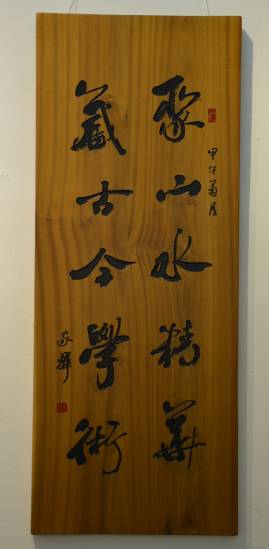 甲午菊月
聚山水精華
藏古今學術